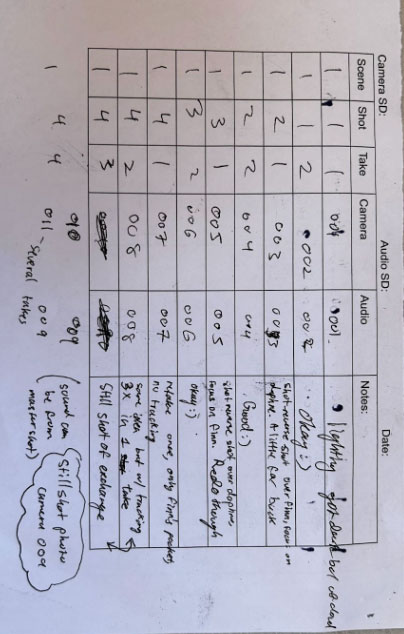 Camera SD: Audio SD: Date:
Scene Shot Take Camera Audio Notes:
1 1 1 001 001 lightly
1 1 2 002 002 Okay :)
1 2 1 003 003 Shot-reverse shot over Finn, focus on
daphne. A little far back
1 2 2 004 004 Good :)
1 3 1 005 005 shot reverse shot over daphne,
focus on finn. Redo though
1 3 2 006 006 okay :)
1 4 1 007 007 retake once, only finn's
no tracking
1 4 2 008 008 same idea but w/ tracking
3x in 1 take
1 4 3 Still shot of exchange
1 4 4 010 009 (sound can
be from
master shot)
011 - Several takes 009
Still shot photo
camera 009